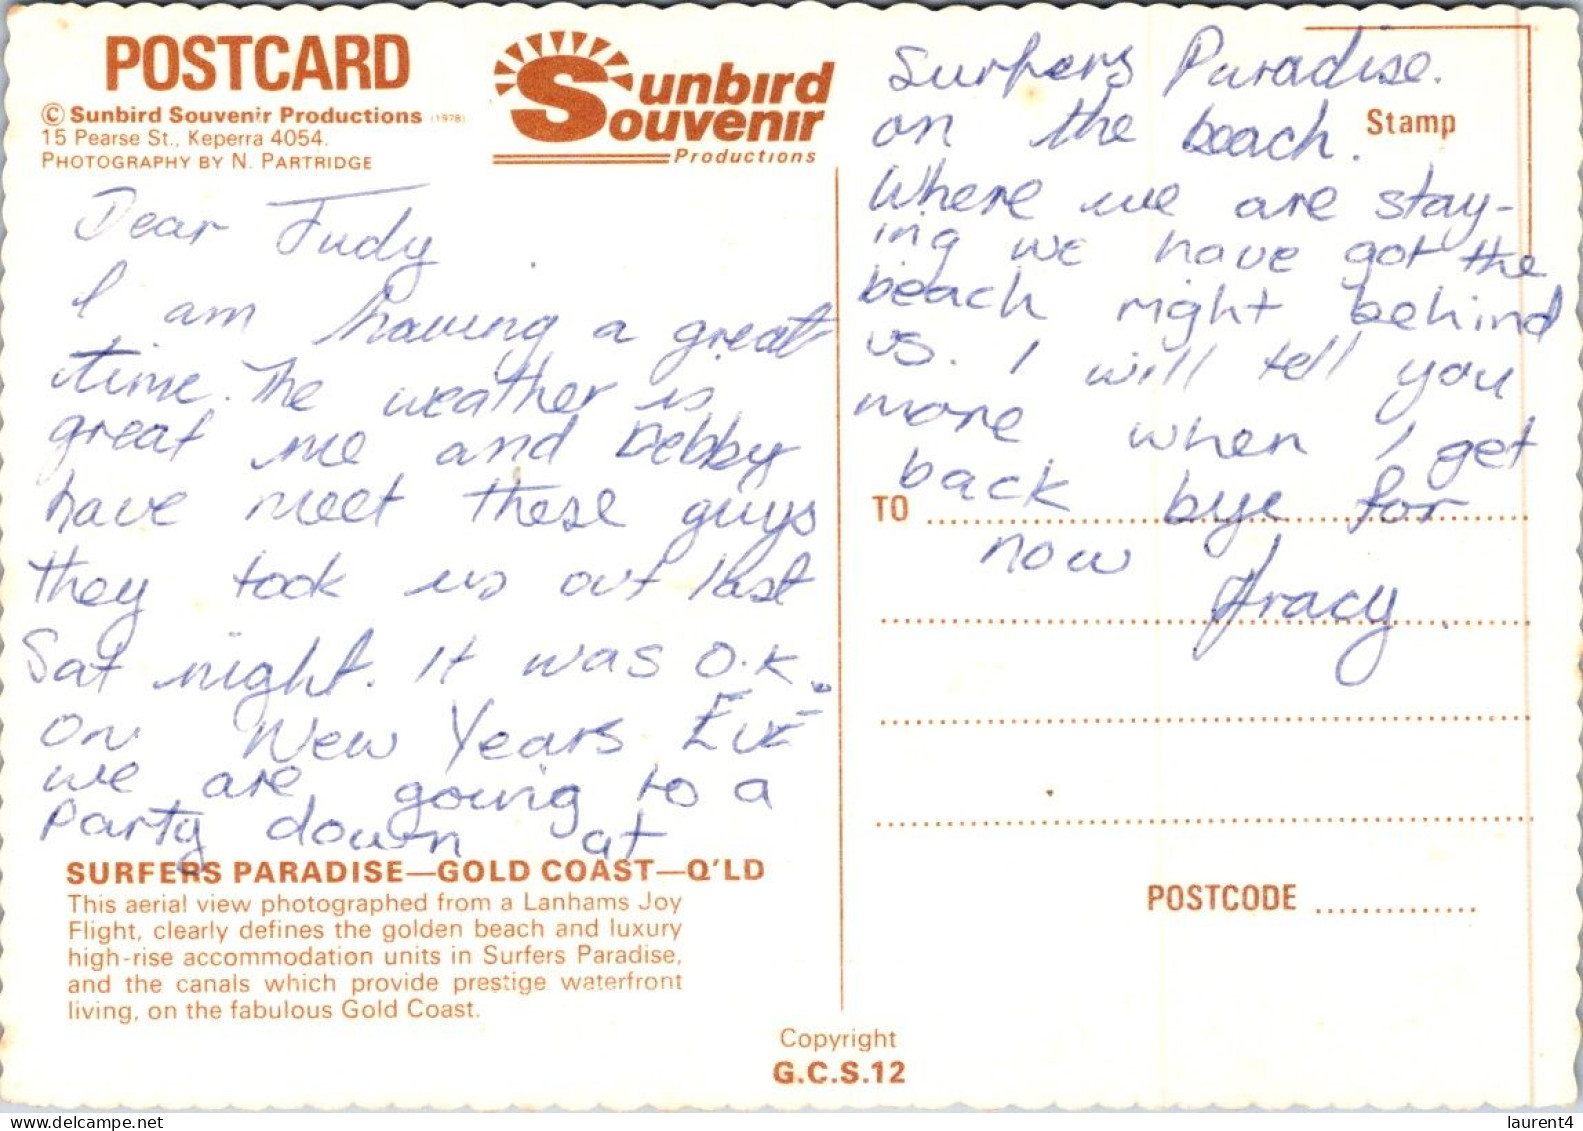 POSTCARD
© Sunbird Souvenir Productions (1978)
15 Pearse St., Keperra 4054.
PHOTOGRAPHY BY N. PARTRIDGE
Sunbird
Souvenir
Productions
Dear Judy
I am having a great
time. The weather is
great me and Debby
have meet these guys
they took us out last
Sat night. It was O.K.
On New Years Eve
we are going to a
Party down at
SURFERS PARADISE—GOLD COAST—Q'LD
This aerial view photographed from a Lanhams Joy
Flight, clearly defines the golden beach and luxury
high-rise accommodation units in Surfers Paradise,
and the canals which provide prestige waterfront
living, on the fabulous Gold Coast.
Surfers Paradise.
on the beach.
Stamp
Where we are stay-
ing we have got the
beach right behind
us. I will tell you
more when I get
back bye for
TO
now Tracy.
POSTCODE
Copyright
G.C.S.12
laurent4